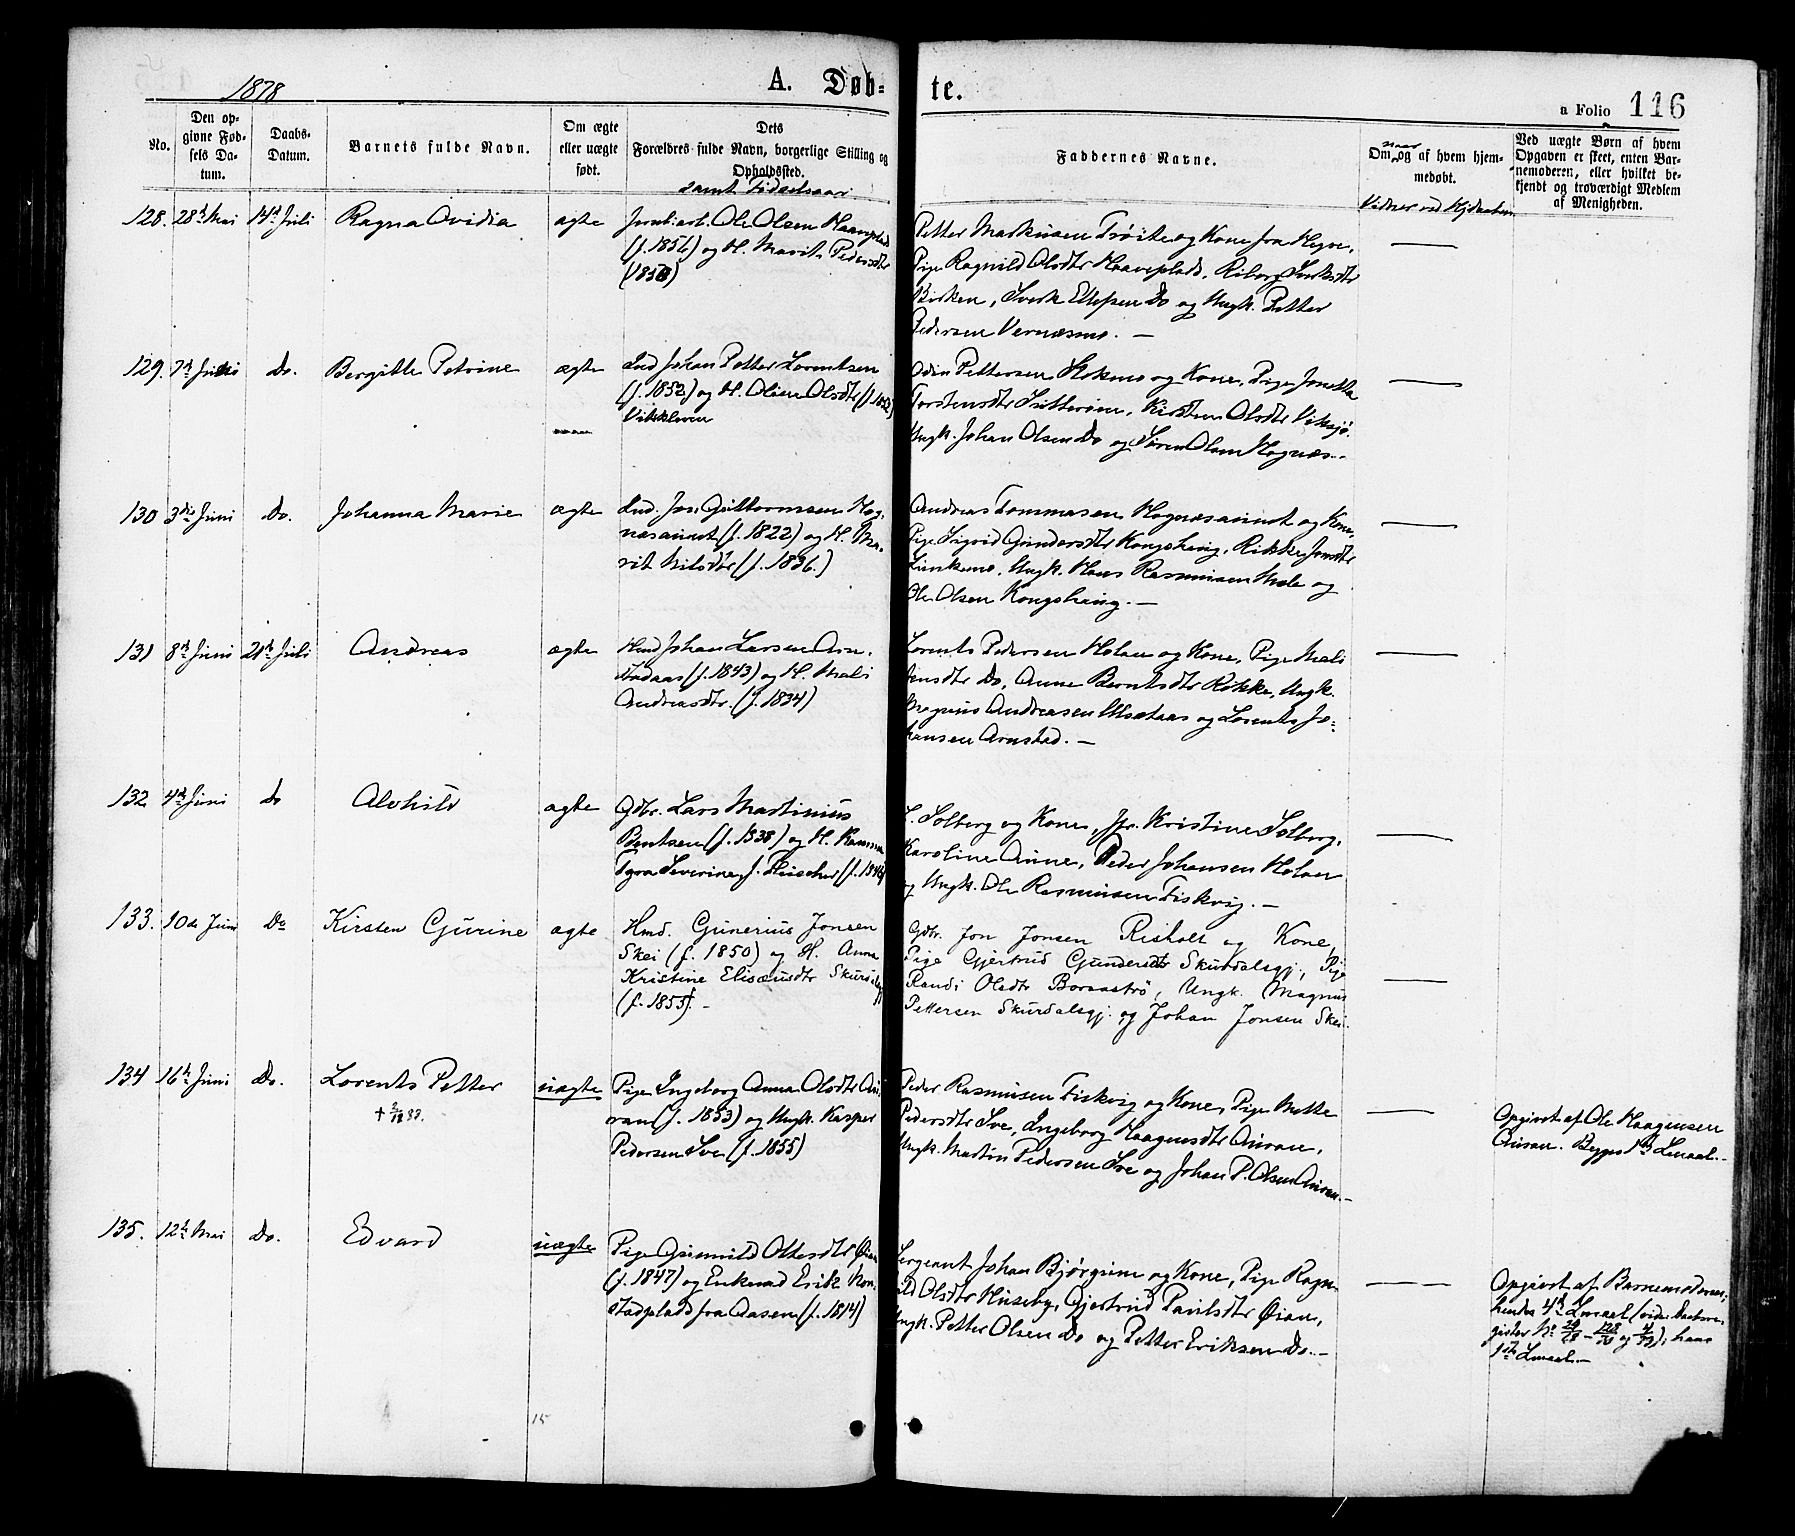 1878
A. Døb-
te.
a Folio 116
No.
Den op-
givne Fød-
sels Da-
tum.
Daabs-
Datum.
Barnets fulde Navn.
Om ægte
eller uægte
født.
Dets
Forældres fulde Navn, borgerlige Stilling og
Opholdssted.
samt Fødselsaar
Faddernes Navne.
naar
Om og af hvem hjem-
medøbt.
Vidner ved Hjdaaben
Ved uægte Børn af hvem
Opgaven er skeet, enten Bar-
nemoderen, eller hvilket be-
kjendt og troværdigt Medlem
af Menigheden.
128. 28d Mai 14d Juli Ragna Ovidia ægte
Ole Olsen Haaveplads
(f. 1856) og H. Marit Pedersdtr
(1850)
Petter Markusen Trøite og Kone fra Hegre,
Pige Ragnild Olsdtr Haaveplads,
Birken, Sverk Ellefsen Do og Ungk. Petter
Pedersen Vernæsmo. —
129. 7d Juni Do. Bergitte Petrine ægte
Ind Johan Petter Lorentsen
(f. 1852) og H. Oline Olsdtr (f. 1852)
Vikkleven
Odin Pettersen Mokmo og Kone, Pige Jonetta
Torstensdtr Sutterøen, Kirsten Olsdtr Viksjø.
Ungk. Johan Olsen Do og Søren Olsen Hognæs.-
130 3die Juni Do. Johanna Marie ægte
Ind. Jon Guttormsen Hog-
næsaunet (f. 1822) og H. Ma-
rit Nilsdtr (f. 1836.)
Andreas Tommasen Hognæsaunet og Kone,
Pige Sigrid Gundersdtr Kongshaug, Rikke Jonsdtr
Ungk. Hans Rasmusen Mæle og
Ole Olsen Kongshaug. —
131 8d Juni 21d Juli Andreas ægte
Hmd Johan Larsen Arn-
stadaas (f. 1843) og H. Mali
Andreasdtr. (f. 1834)
Lorents Pedersen Holan og Kone, Pige Mali
Jensdtr Do, Anne Berntsdtr Røkke, Ungk.
Magnus Andreasen og Lorents Jo-
hansen Arnstad. —
132 4d Juni Do Alvhild ægte
Gdbr. Lars Martinius
Bentsen (f. 1838) og H.
Tyra Severine f. Fleischer (f. 1846)
L. Solberg og Kone, Kristine Solberg,
Karoline Aune, Peder Johansen Holan
og Ungk. Ole Rasmusen Fiskvig. —
133. 10de Juni Do Kirsten Gjurine ægte
Hmd. Gunerius Jonsen
Skei (f. 1850) og H. Anna
Kristine Elisæusdtr Skurdalsgj
(f. 1855). -
Gdbr. Jon Jonsen Risholt og Kone,
Pige Gjertrud Gundersdtr Skurdalsgj., Pige
Randi Olsdtr Boraastrø, Ungk. Magnus
Pettersen Skurdalsgj. og Johan Jonsen Skei.
134 16d Juni Do. Lorents Petter uægte
Pige Ingeborg Anna Olsdtr Au-
ran (f. 1853) og Ungk. Kasper
Pedersen Sve (f. 1855)
Peder Rasmusen Fiskvig og Kone, Pige Mette
Pedersdtr Sve, Ingeborg Haagensdtr Auran,
Ungk. Martin Pedersen Sve og Johan P. Olsen Auran.-
Opgivet af Ole Haagensen
Auran. Begges 1ste Lmaal.-
135. 12d Mai Do. Edvard uægte
Pige Gunnild Ottesdtr Øian
(f. 1847) og Enkmd Erik Kon-
stadplads fra Aasen (f. 1814)
Sergeant Johan Bjørgum og Kone, Pige Ragn-
ild Olsdtr Huseby, Gjertrud Paulsdtr Øian,
Ungk. Petter Olsen Do og Petter Eriksen Do.-
Opgivet af Barnemoderen,
hendes 4d Lmaal (vide Daabsre-
gister No
1ste Lmaal.-
15